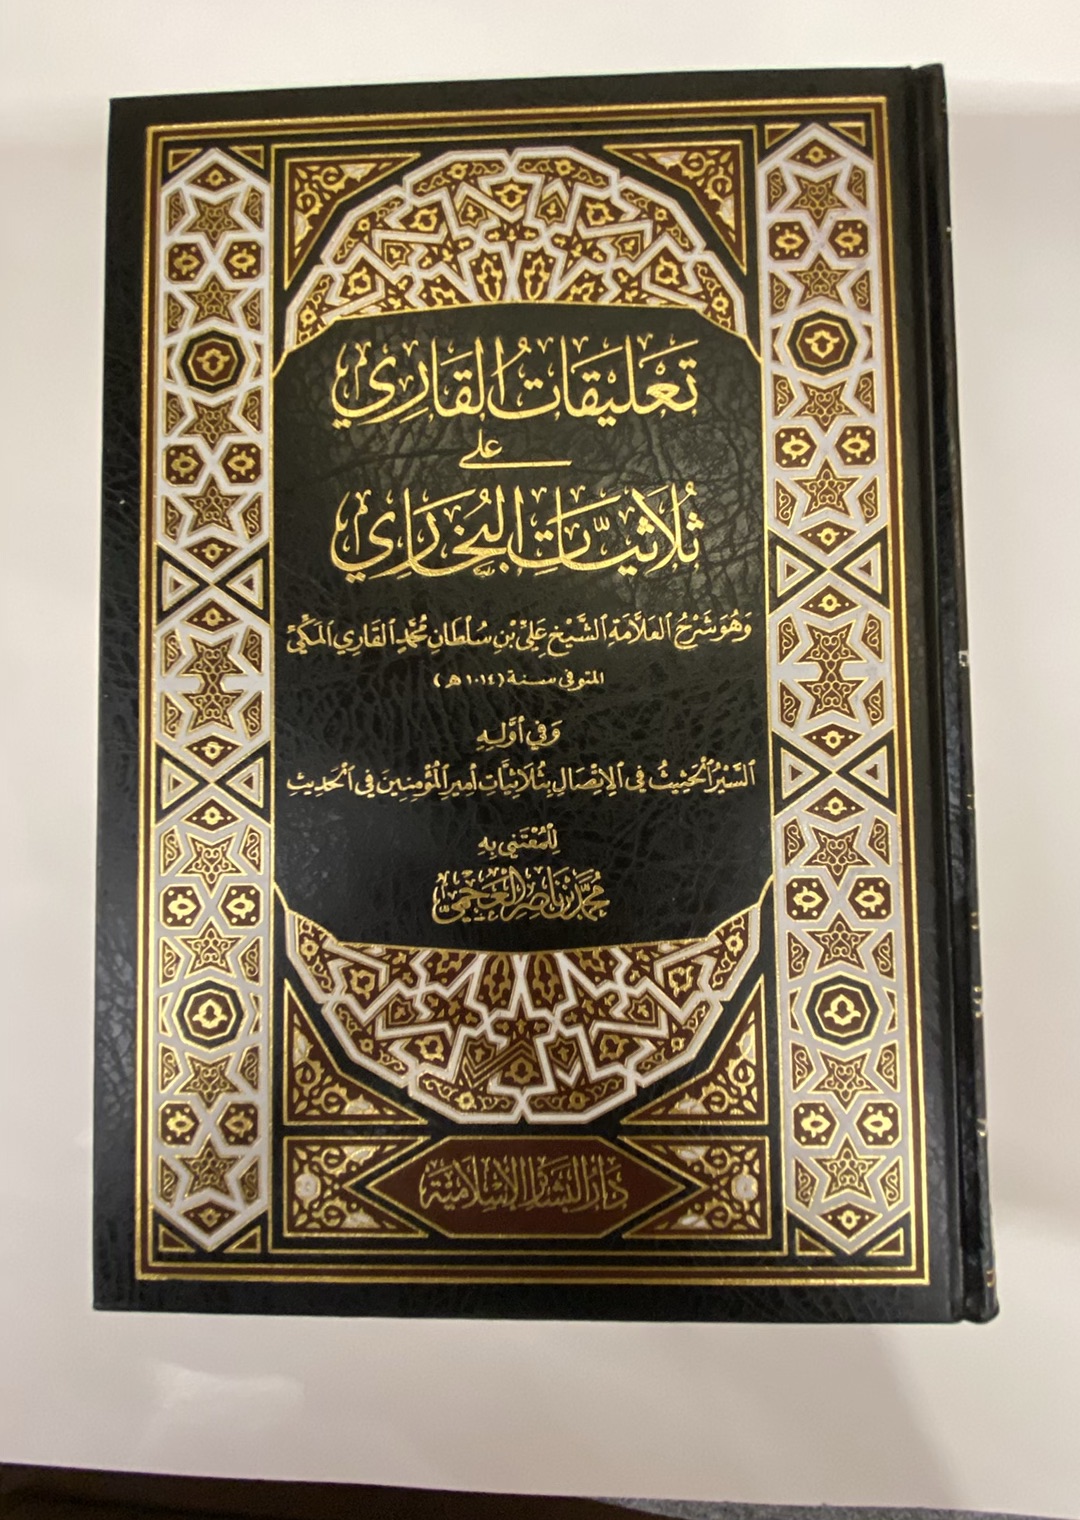 تَعْلِيقَاتُ القَارِي
عَلى
ثُلَاثِيَّاتِ البُخَارِي
وَهُوَ شَرْحُ العَلَّامَةِ الشَّيْخِ عَلِيِّ بْنِ سُلْطَانِ مُحَمَّدٍ القَارِي المَكِّيِّ
المتوفى سنة (١٠١٤ هـ)
وَفِي أَوَّلِهِ
السَّيْرُ الْحَثِيثُ فِي الِاتِّصَالِ بِثُلَاثِيَّاتِ أَمِيرِ الْمُؤْمِنِينَ فِي الْحَدِيثِ
لِلْمُعْتَنِي بِهِ
مُحَمَّد بْن نَاصِر العَجْمِيّ
دَارُ البَشَائِرِ الإِسْلَامِيَّة